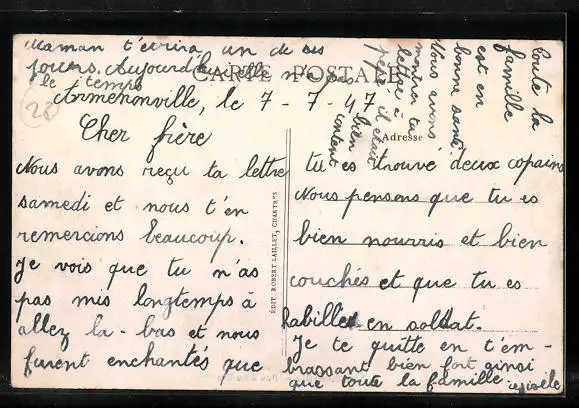 Maman t'écrira un de ses
jours. Aujourd'hui elle n'a pas
le temps
CARTE POSTALE
28
Armenonville, le 7-7-47
Cher frère
Nous avons reçu ta lettre
samedi et nous t'en
remercions beaucoup.
Je vois que tu n'as
pas mis longtemps à
allez la-bas et nous
furent enchantés que
EDIT. ROBERT LAILLET, CHARTRES
Adresse
tu es trouvé deux copains
Nous pensons que tu es
bien nourris et bien
couchés et que tu es
habillet en soldat.
Je te quitte en t'em-
brassant bien fort ainsi
que toute la famille Gisèle
Toute la
famille
est en
bonne santé
Nous avons
montré ta
lettre à
pépé il était
bien
content